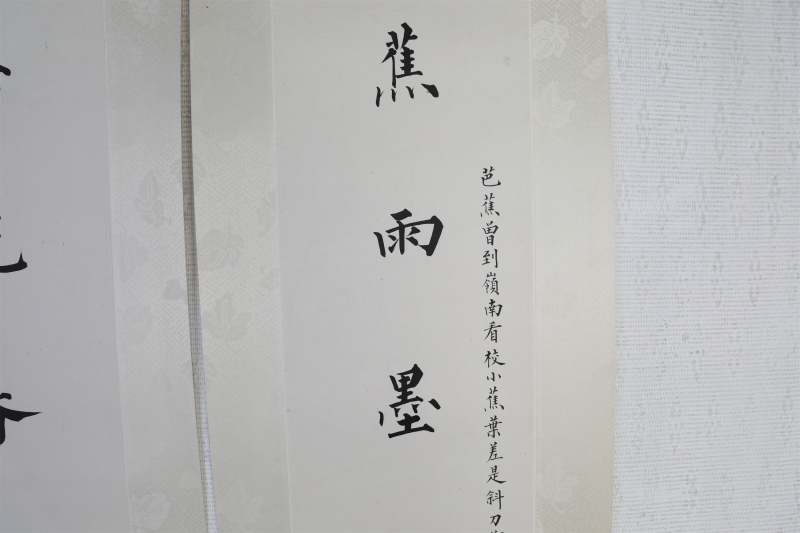 芭蕉曾到嶺南看校小蕉葉差是斜刀
蕉雨墨